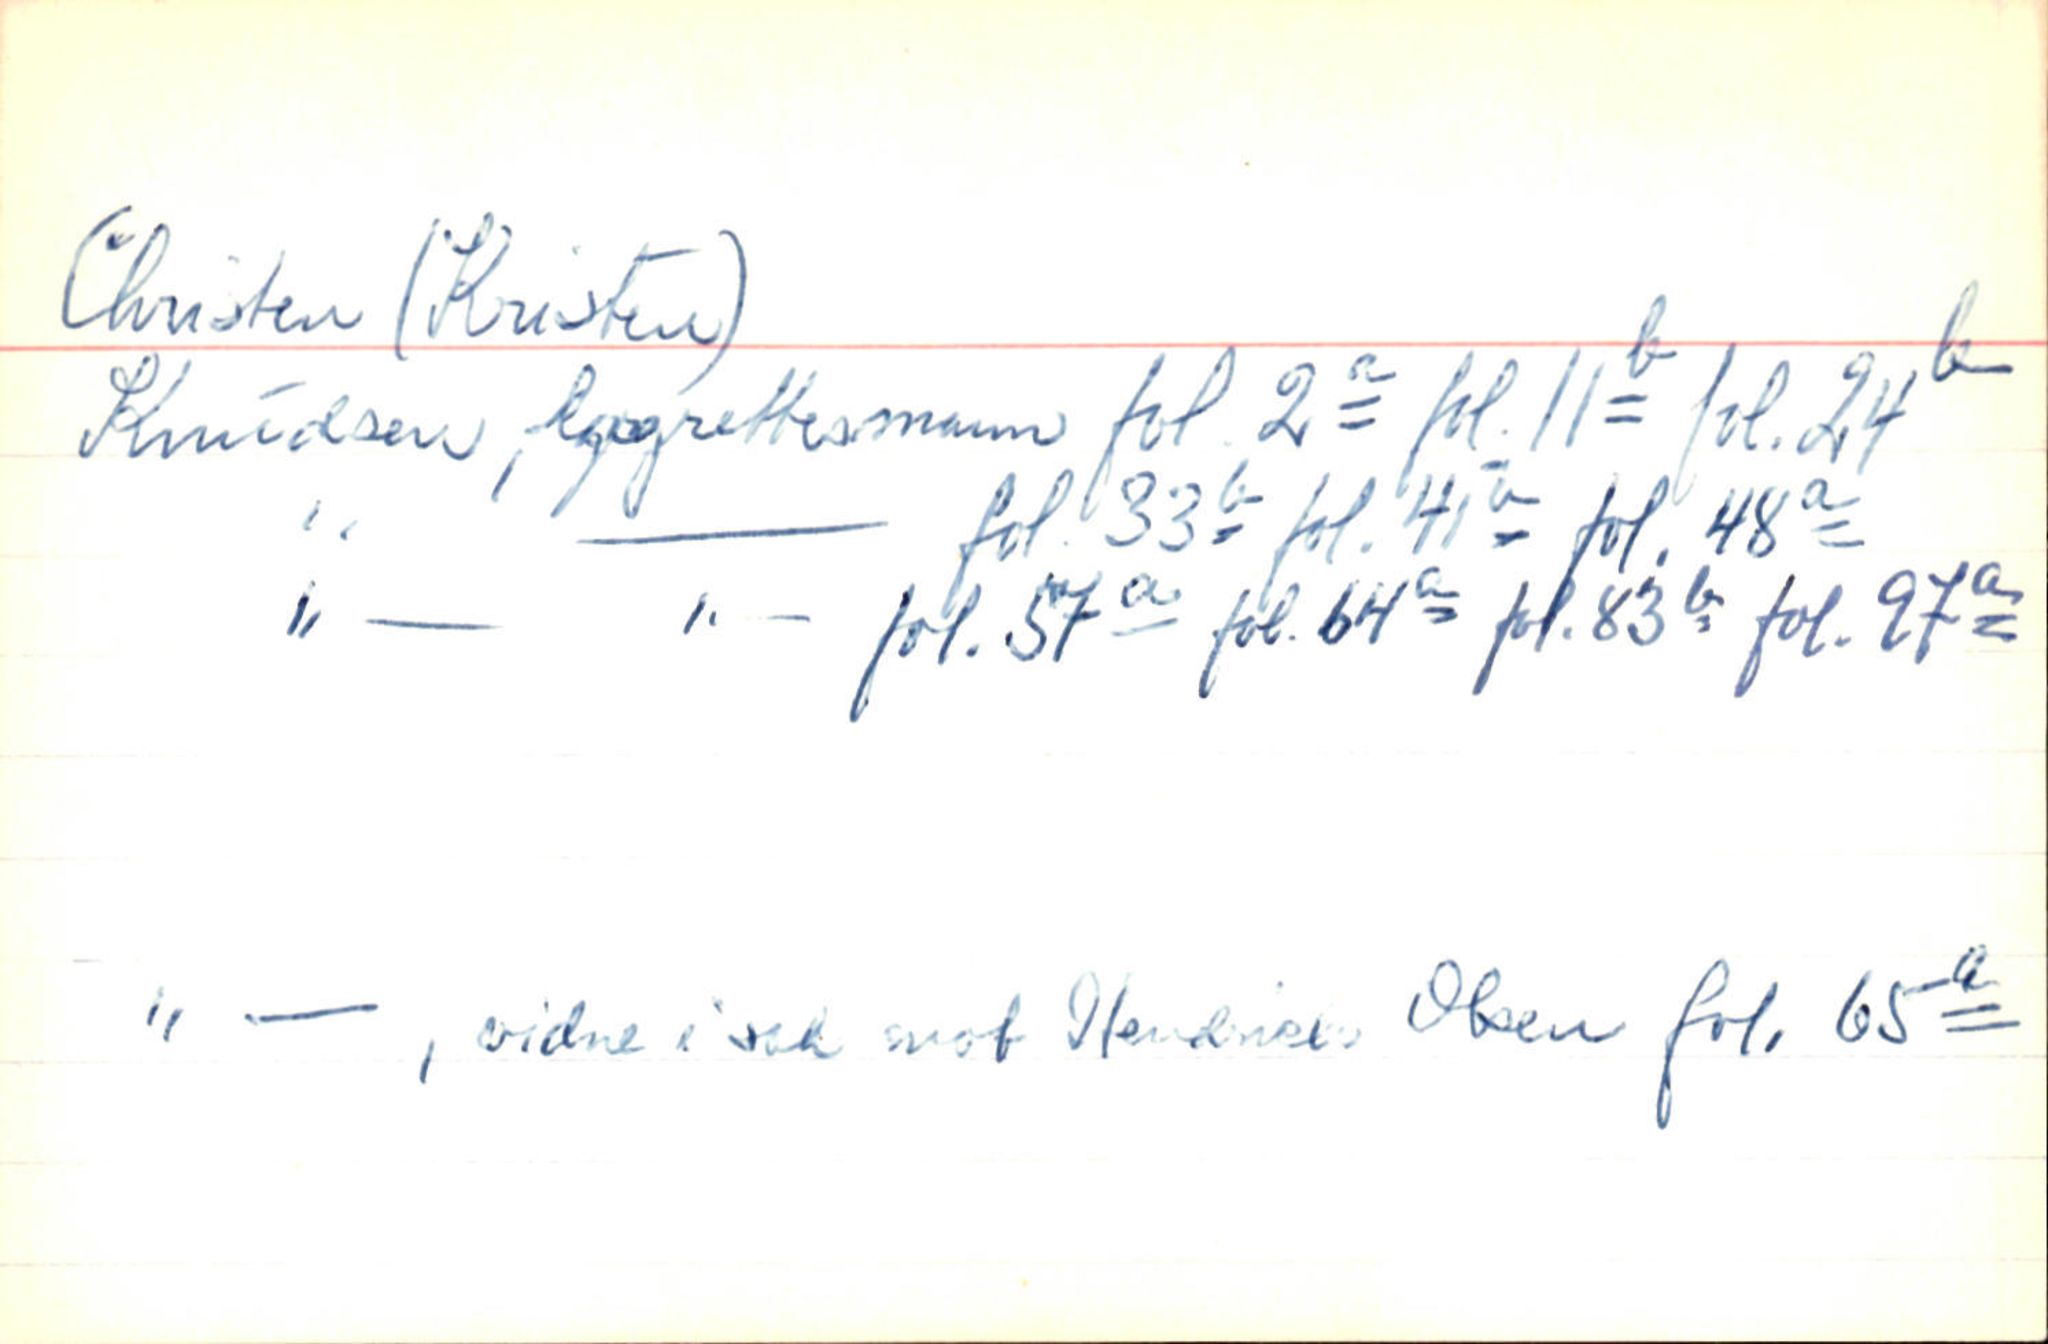 Christen (Kristen)
Knudsen, lagrettesmann fol. 2a fol. 11b fol. 24b
" — fol. 33b fol. 41b fol. 48a
" — " — fol. 57a fol. 64a fol. 83b fol. 97a
" — , vidne i sak mot Hendrich Olsen fol. 65a